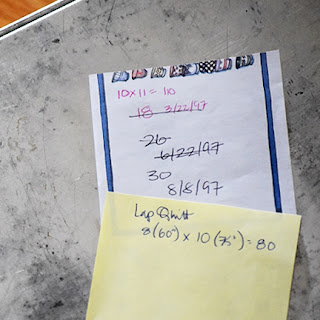 10x11 = 10
18 3/22/97
26
6/22/97
30
8/8/97
Lap Quilt
8(60") x 10(75") = 80